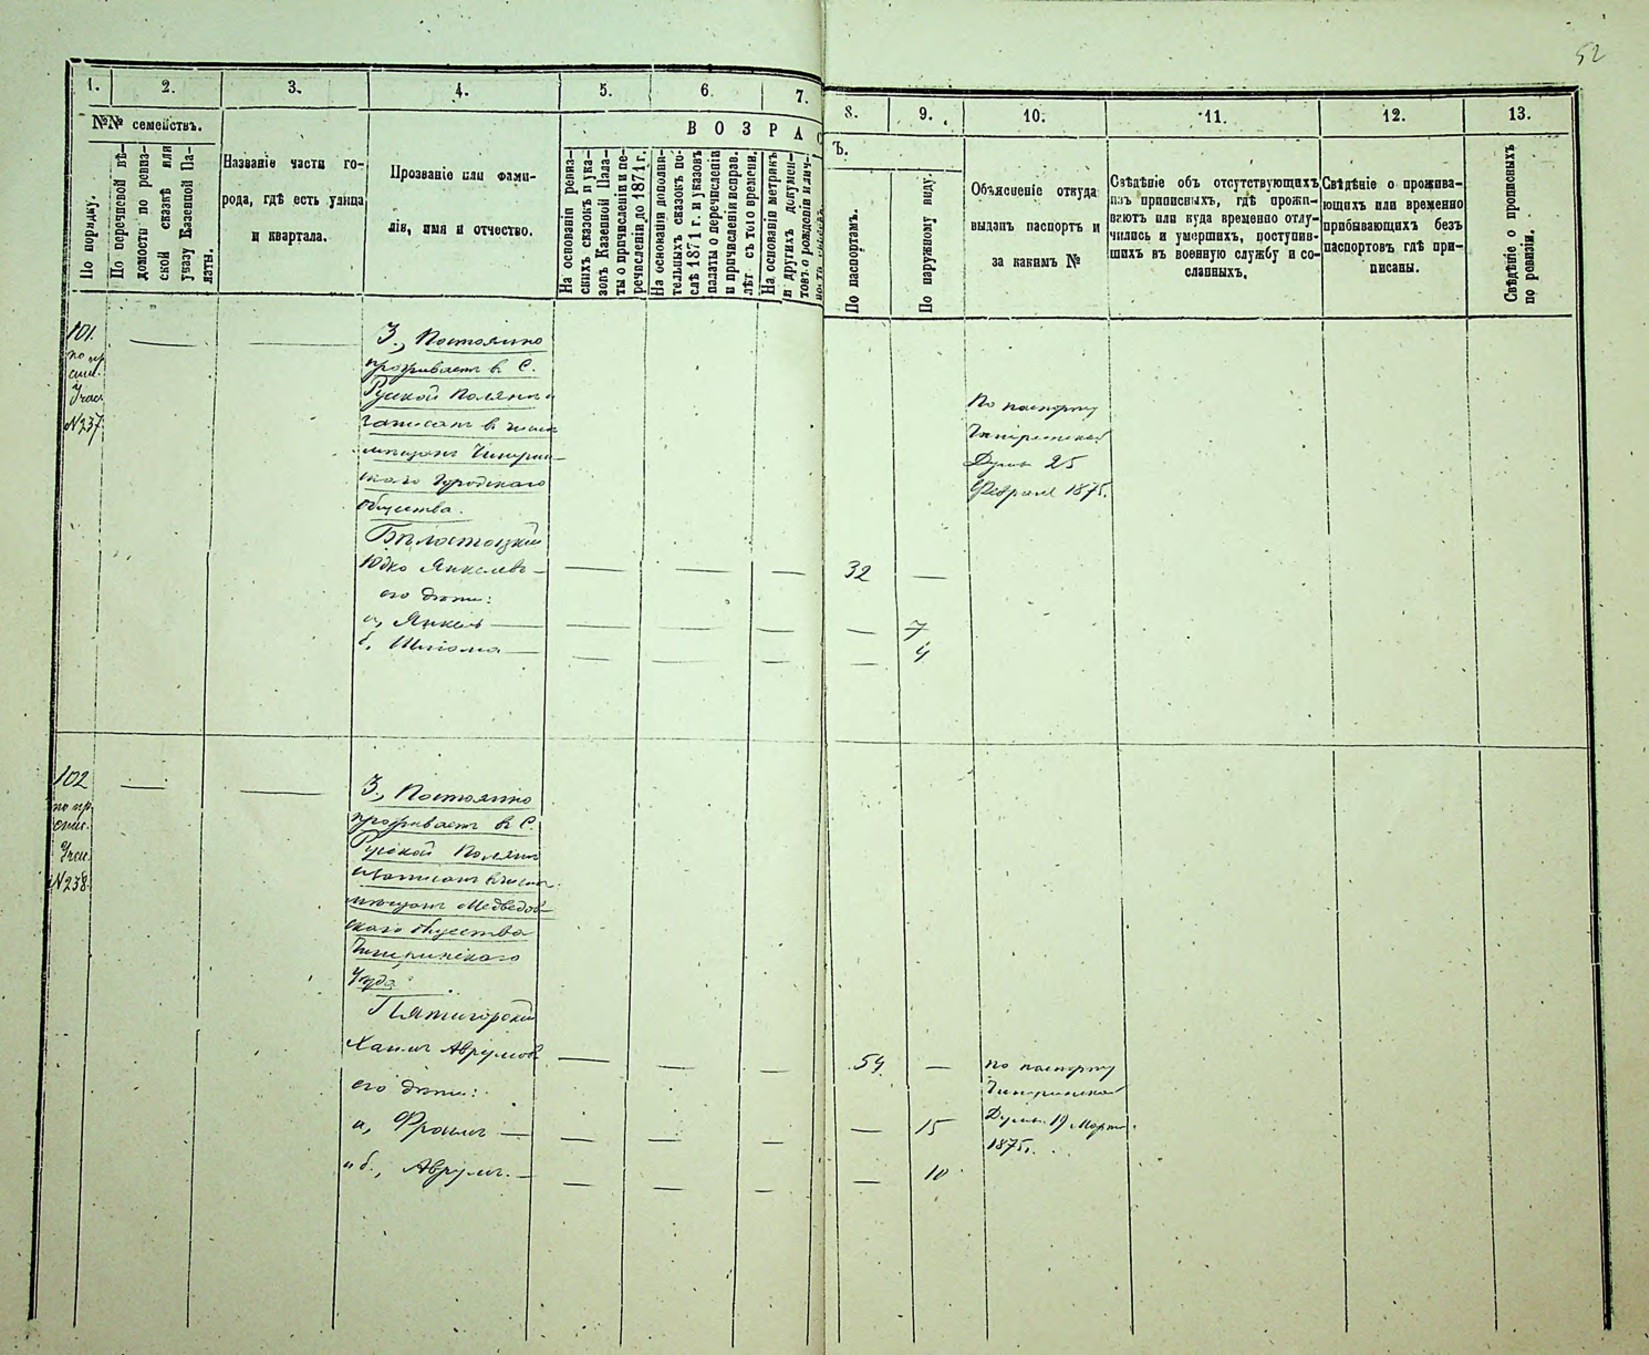 52
1. 2. 3. 4. 5. 6. 7. 8. 9. 10. 11. 12. 13.
№№ семействъ.
По порядку.
По перечневой вѣ-
домости по ревиз-
ской сказкѣ или
указу Казенной Па-
латы.
Названіе части го-
рода, гдѣ есть улица
и квартала.
Прозваніе или фами-
лія, имя и отчество.
ВОЗРАС
Ъ.
На основаніи ревиз-
скихъ сказокъ и ука-
зовъ Казенной Пала-
ты о причисленіи и пе-
речисленіи до 1871 г.
На основаніи дополни-
тельныхъ сказокъ по-
слѣ 1871 г. и указовъ
палаты о перечисленіи
и причисленіи исправ.
лѣт съ того времени.
На основаніи метрикъ
и другихъ докумен-
товъ о рожденіи и лич-
По паспортамъ.
По наружному виду.
Объясненіе откуда
выданъ паспортъ и
за какимъ №
Свѣдѣніе объ отсутствующихъ
изъ приписныхъ, гдѣ прожи-
ваютъ или куда временно отлу-
чились и умершихъ, поступив-
шихъ въ военную службу и со-
сланныхъ.
Свѣдѣніе о прожива-
ющихъ или временно
прибывающихъ безъ
паспортовъ гдѣ при-
писаны.
Свѣдѣніе о прописныхъ
по ревизіи.
101.
по пр.
N 237
З., Постоянно
проживаетъ въ С.
Руской Поляны и
записанъ въ число
мѣщанъ Чигирин-
скаго Городскаго
общества.
Бѣлостоцкій
Юдко Янкелевъ — — — — 32 —
его дѣти:
а, Янкель — — — — — 7
б, Шліома — — — — — 4
По паспорту
Чигиринской
Думы 25
Февраля 1875.
102
по пр.
N 238.
З., Постоянно
проживаетъ въ С.
Руской Поляны
записанъ въ число
мѣщанъ Медведов-
скаго общества
Чигиринскаго
Уезда
Пятигорскій
Хаимъ Аврумовъ — — — 54. —
его дѣти:
а, Фроимъ — — — — — 15
и б., Аврумъ. — — — — — 10
по паспорту
Чигиринской
Думы 19 Марта
1875.